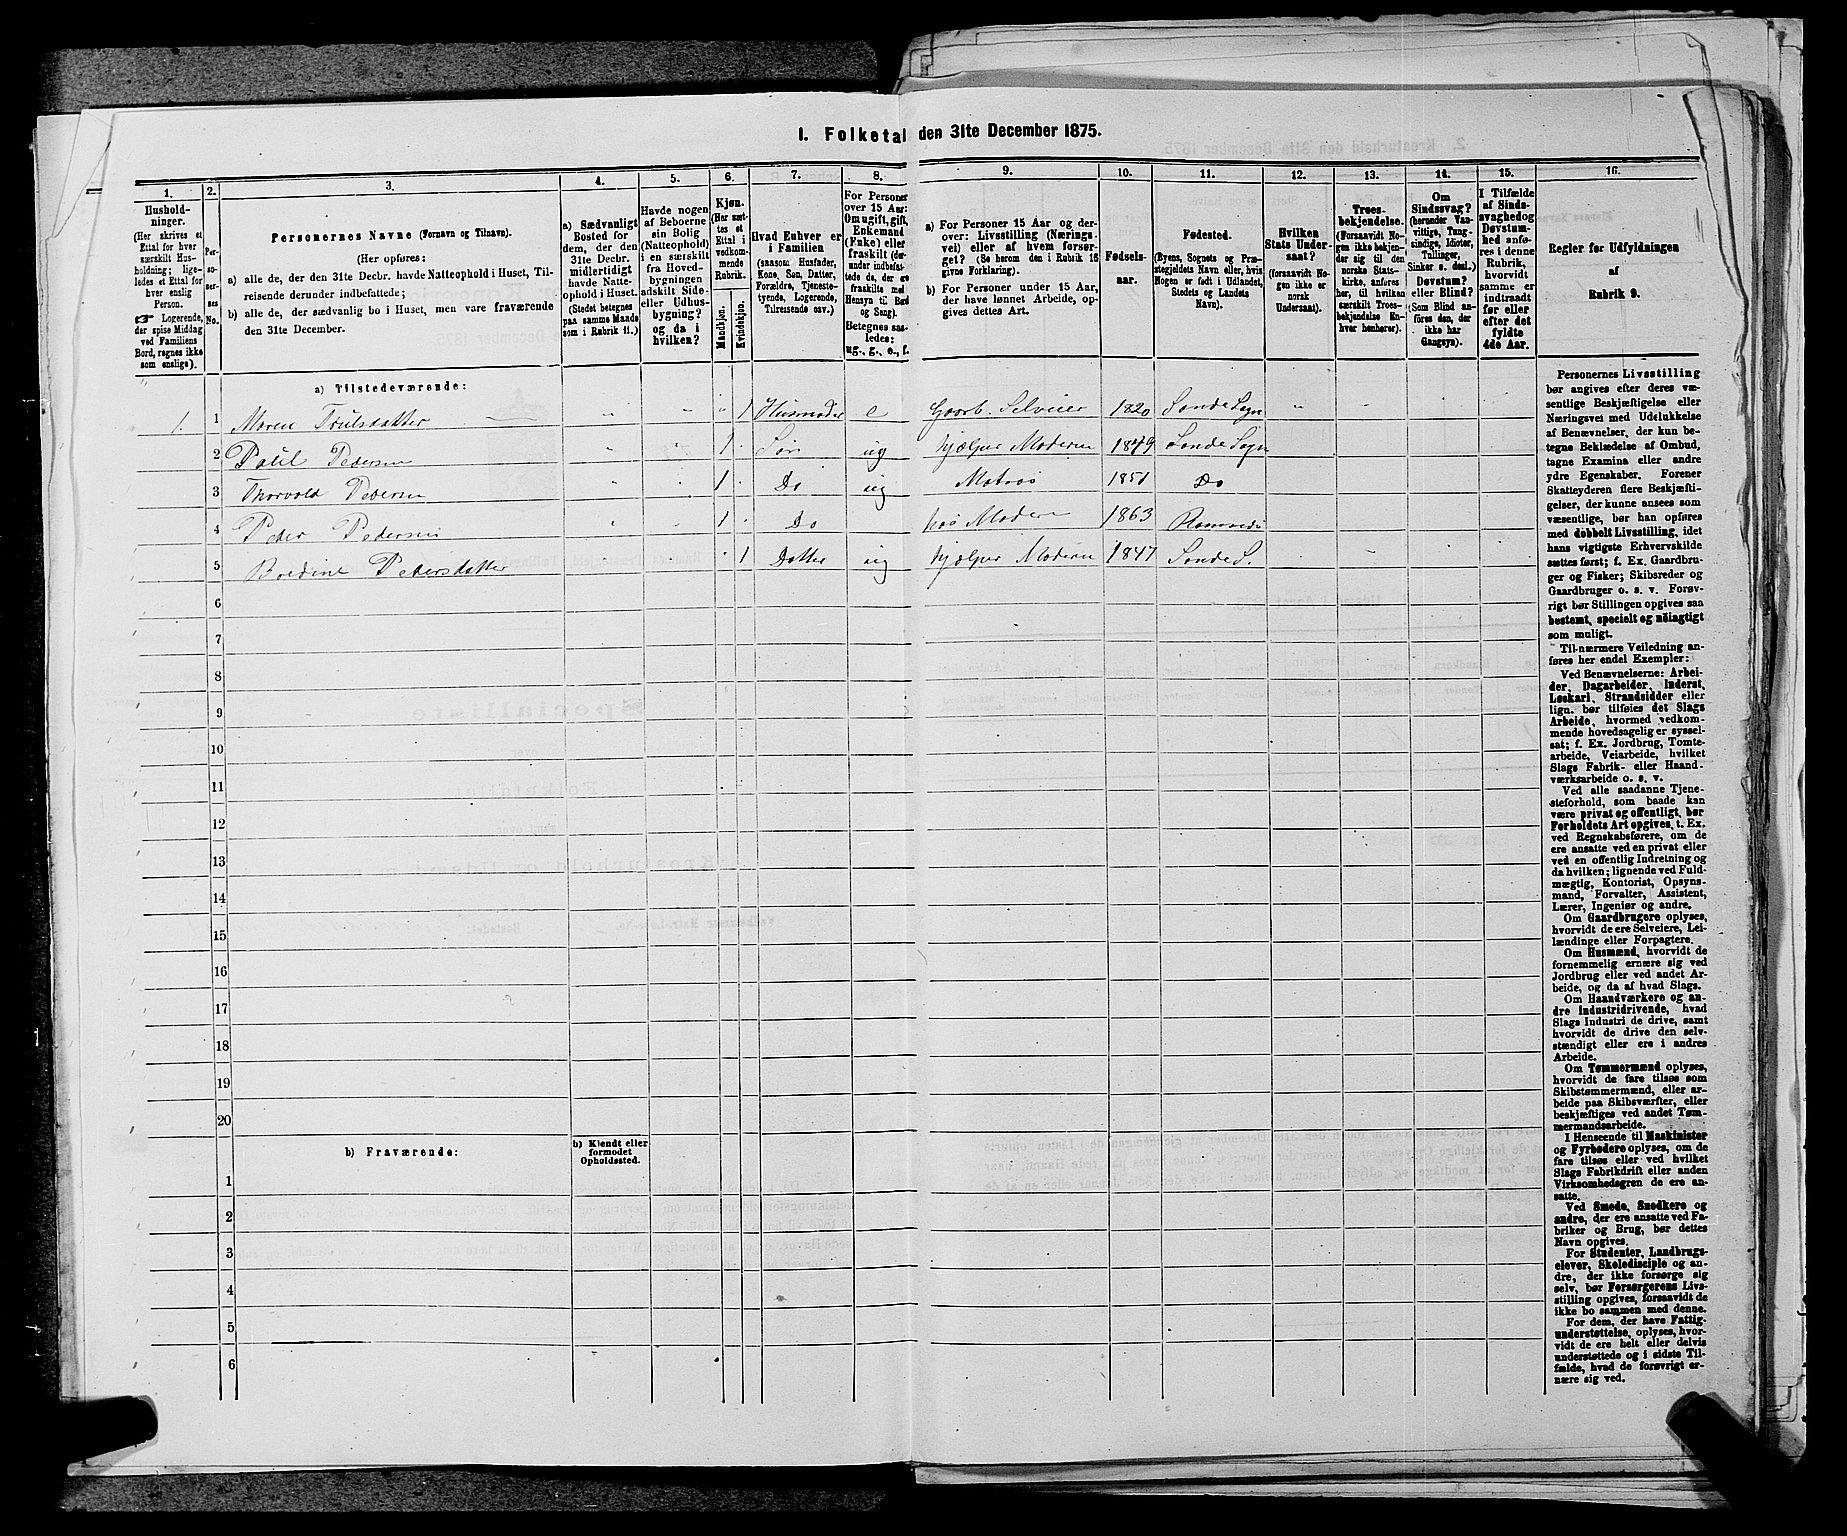 1. Folketal den 31te December 1875.
1. 2. 3. 4. 5. 6. 7. 8. 9. 10. 11. 12. 13. 14. 15. 16.
Hushold-
ninger.
(Her skrives et
Ettal for hver
særskilt Hus-
holdning; lige-
ledes et Ettal for
hver enslig
Person.
☛ Logerende,
der spise Middag
ved Familiens
Bord, regnes ikke
som enslige).
Per-
so-
ner-
nes
No.
Personernes Navne (Fornavn og Tilnavn).
(Her opføres:
a) alle de, der den 31te Decbr. havde Natteophold i Huset, Til-
reisende derunder indbefattede;
b) alle de, der sædvanlig bo i Huset, men vare fraværende
den 31te December.
a) Sædvanligt
Bosted for
dem, der den
31te Decbr.
midlertidigt
havde Natte-
ophold i Huset.
(Stedet betegnes
paa samme Maade
som i Rubrik 11.)
Havde nogen
af Beboerne
sin Bolig
(Natteophold)
i en særskilt
fra Hoved-
bygningen
adskilt Side-
eller Udhus-
bygning?
og da i
hvilken?
Kjøn.
(Her sæt-
tes et
Ettal i
vedkom-
mende
Rubrik.
Mandkjøn.
Kvindekjøn.
Hvad Enhver er
i Familien
(saasom Husfader,
Kone, Søn, Datter,
Forældre, Tjeneste-
tyende, Logerende,
Tilreisende osv.)
For Personer
over 15 Aar:
Om ugift, gift,
Enkemand
(Enke) eller
fraskilt (der-
under indbefat-
tede de, der ere
fraskilte med
Hensyn til Bord
og Seng).
Betegnes saa-
ledes:
ug., g., e., f.
a) For Personer 15 Aar og der-
over: Livsstilling (Nærings-
vei) eller af hvem forsør-
get? (Se herom den i Rubrik 16
givne Forklaring).
b) For Personer under 15 Aar,
der have lønnet Arbeide, op-
gives dettes Art.
Fødsels-
aar.
Fødested.
(Byens, Sognets og Præ-
stegjeldets Navn eller, hvis
Nogen er født i Udlandet,
Stedets og Landets
Navn).
Hvilken
Stats Under-
saat?
(forsaavidt No-
gen ikke er
norsk
Undersaat).
Troes-
bekjendelse.
(Forsaavidt No-
gen ikke bekjen-
der sig til den
norske Stats-
kirke, anføres
her, til hvilken
særskilt Troes-
bekjendelse En-
hver henhører).
Om
Sindssvag?
(herunder Van-
vittige, Tung-
sindige, Idioter,
Tullinger,
Sinker o. desl.)
Døvstum?
eller Blind?
(Som Blind an-
føres den, der
ikke har
Gangsyn).
I Tilfælde
af Sinds-
svaghed og
Døvstum-
hed anfø-
res i denne
Rubrik,
hvorvidt
samme er
indtraadt
før eller
efter det
fyldte
4de Aar.
Regler for Udfyldningen
af
Rubrik 9.
a) Tilstedeværende:
1. 1 Maren Trulsdatter " " " 1 Husmoder e Gaarb. Selveier 1820 Sonde Sogn " "
2 Paul Pedersen " " 1 · Søn ug hjælper Moderen 1849 Sonde Sogn
3 Thorvald Pedersen " " 1 · Do ug Matros 1851 Do
4 Peder Pedersen " " 1 · Do hos Moderen 1863
5 Bredine Pedersdatter " 1 Datter ug hjælper Moderen 1847 Sonde S.
6
7
8
9
10
11
12
13
14
15
16
17
18
19
20
b) Fraværende:
b) Kjendt eller
formodet
Opholdssted.
1
2
3
4
5
6
Personernes Livsstilling
bør angives efter deres væ-
sentlige Beskjæftigelse eller
Næringsvei med Udelukkelse
af Benævnelser, der kun be-
tegne Beklædelse af Ombud,
tagne Examina eller andre
ydre Egenskaber. Forener
Skatteyderen flere Beskjæfti-
gelser, der kunne ansees som
væsentlige, bør han opføres
med dobbelt Livsstilling, idet
hans vigtigste Erhvervskilde
sættes først; f. Ex. Gaardbru-
ger og Fisker; Skibsreder og
Gaardbruger o. s. v. Forøv-
rigt bør Stillingen opgives saa
bestemt, specielt og nøiagtigt
som muligt.
Til nærmere Veiledning an-
føres her endel Exempler:
Ved Benævnelserne: Arbei-
der, Dagarbeider, Inderst,
Løskarl, Strandsidder eller
lign. bør tilføies det Slags
Arbeide, hvormed vedkom-
mende hovedsagelig er syssel-
sat; f. Ex. Jordbrug, Tomte-
arbeide, Veiarbeide, hvilket
Slags Fabrik- eller Haand-
værksarbeide o. s. v.
Ved alle saadanne Tjene-
steforhold, som baade kan
være privat og offentligt, bør
Forholdets Art opgives, t. Ex.
ved Regnskabsførere, om de
ere ansatte ved en privat eller
ved en offentlig Indretning og
da hvilken; lignende ved Fuld-
mægtig, Kontorist, Opsyns-
mand, Forvalter, Assistent,
Lærer, Ingeniør og andre.
Om Gaardbrugere oplyses,
hvorvidt de ere Selveiere, Lei-
lændinge eller Forpagtere.
Om Husmænd, hvorvidt de
fornemmelig ernære sig ved
Jordbrug eller ved andet Ar-
beide, og da af hvad Slags.
Om Haandværkere og an-
dre Industridrivende, hvad
Slags Industri de drive, samt
hvorvidt de drive den selv-
stændigt eller ere i andres
Arbeide.
Om Tømmermænd oplyses,
hvorvidt de fare tilsøs som
Skibstømmermænd, eller ar-
beide paa Skibsværfter, eller
beskjæftiges ved andet Tøm-
mermandsarbeide.
I Henseende til Maskinister
og Fyrbødere oplyses, om de
fare tilsøs eller ved hvilket
Slags Fabrikdrift eller anden
Virksomhedsgren de ere an-
satte.
Ved Smede, Snedkere og
andre, der ere ansatte ved Fa-
briker og Brug, bør dettes
Navn opgives.
For Studenter, Landbrugs-
elever, Skoledisciple og an-
dre, der ikke forsørge sig
selv, bør Forsørgerens Livs-
stilling opgives, forsaavidt de
ikke bo sammen med denne.
For dem, der have Fattig-
understøttelse, oplyses, hvor-
vidt de ere helt eller delvis
understøttede og i sidste Til-
fælde, hvad de forøvrigt er-
nære sig ved.